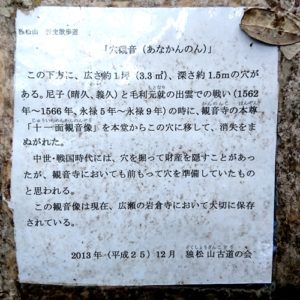 独松山 歴史散歩道
「穴観音(あなかんのん)」
この下方に、広さ約1坪(3.3㎡)、深さ約1.5mの穴が
ある。尼子(晴久、義久)と毛利元就の出雲での戦い(1562
年~1566年、永禄5年~永禄9年)の時に、観音寺の本尊
「十一面観音像」を本堂からこの穴に移して、消失を
まぬがれた。
中世・戦国時代には、穴を掘って財産を隠すことがあっ
たが、観音寺においても前もって穴を準備していたもの
と思われる。
この観音像は現在、広瀬の岩倉寺において大切に保
存されている。
2013年(平成25)12月 独松山古道の会